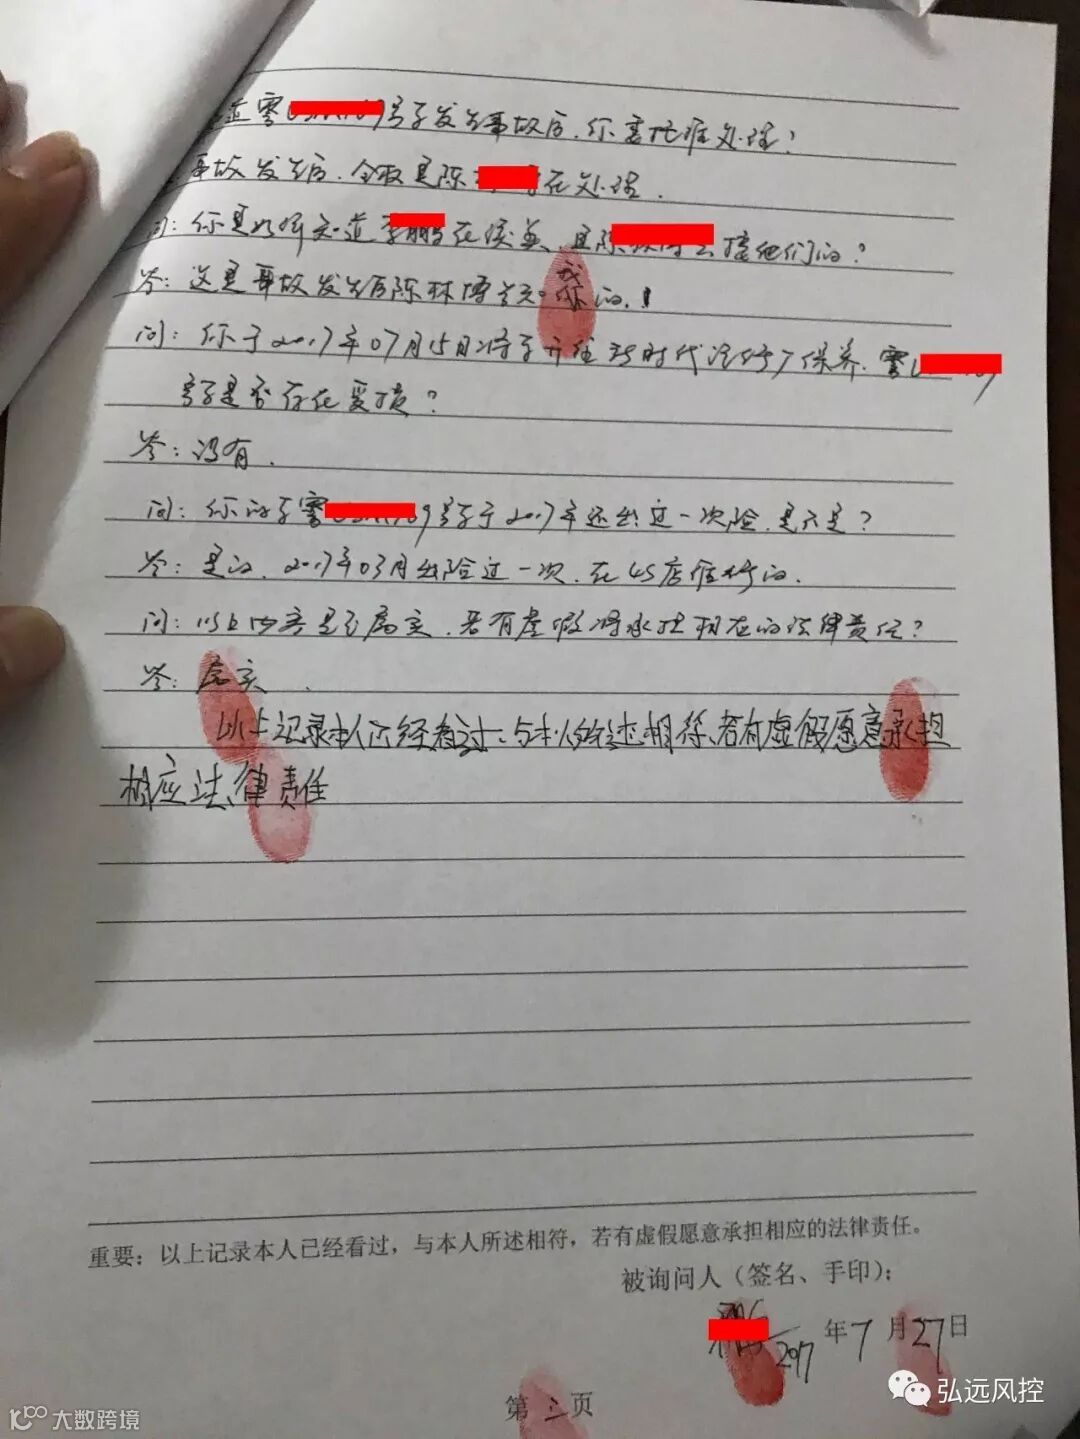 号车发生事故后，你委托谁处理？
事故发生后，全权是陈 在处理．
问：你是如何知道李鹏在侯英、且陈 去接他们的？
答：这是事故发生后陈林博告知我的．
问：你于2017年07月15日将车开往新时代汽修厂保养．
号车是否存在受损？
答：没有．
问：你的车 09号车于2017年还出过一次险．是不是？
答：是的．2017年03月出险过一次．在4S店维修的．
问：以上内容是否属实．若有虚假将承担相应的法律责任？
答：属实．
以上记录本人已经看过、与本人所述相符、若有虚假愿意承担
相应法律责任
重要：以上记录本人已经看过，与本人所述相符，若有虚假愿意承担相应的法律责任。
被询问人（签名、手印）：
2017年7月27日
第三页
弘远风控
大数跨境